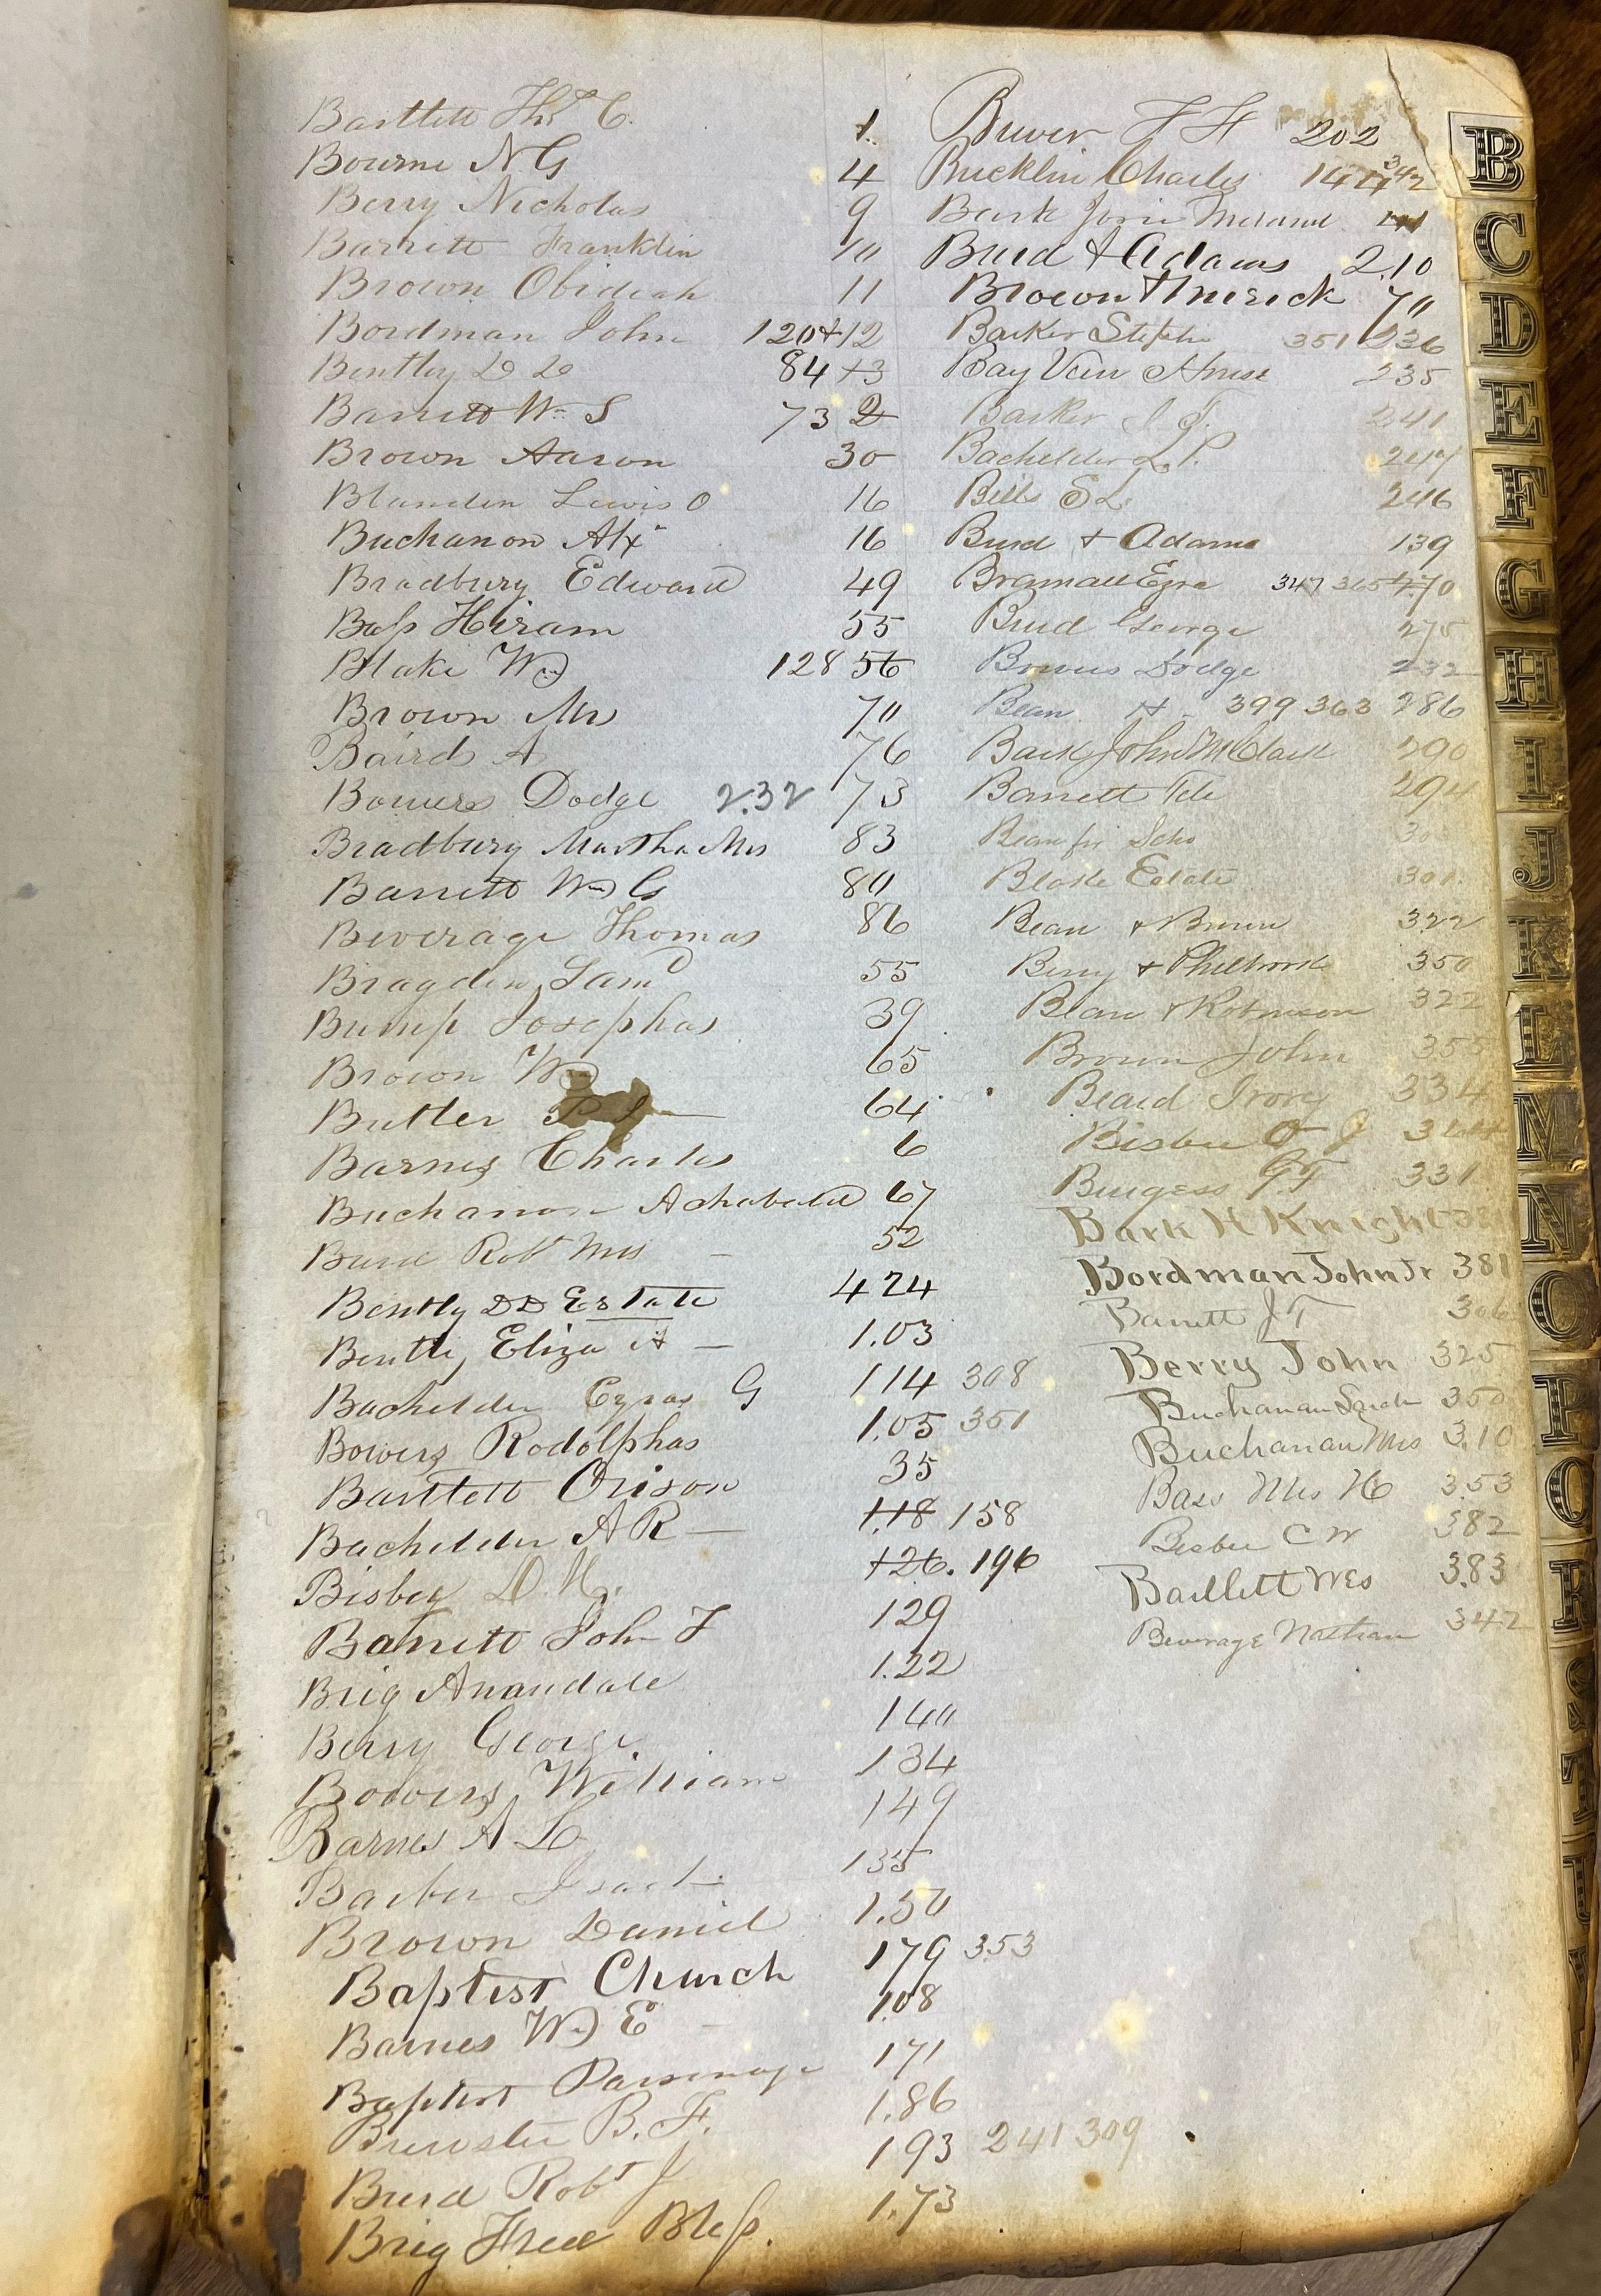 Bartlett Thos C. 1
Bourne N G 4
Berry Nicholas 9
Barrett Franklin 10
Brown Obidiah 11
Bordman John 120 + 12
Bentley D D 84 13
Barrett Wm S 73 2
Brown Aaron 30
Blanden Lewis O 16
Buchanon Alx 16
Bradbury Edward 49
Bass Hiram 55
Blake Wm 128 56
Brown Mr 70
Baird A 76
Bowers Dodge 232 73
Bradbury Martha Mrs 83
Barrett Wm G 80
Beverage Thomas 86
Bragdon Saml 55
Bump Josephas 39
Brown Wm 65
Butler 64
Barnes Charles 6
Buchanon 67
Burd Robt Mrs 52
Bently DD Estate 424
Bently Eliza A 1.03
Bachelder Ezras G 114 308
Bowers Rodolphas 1.05 351
Bartlett Orison 35
Bachelder A R 1.18 158
Bisbey D. M. 126. 196
Barrett John F 129
Brig Anandale 1.22
Berry George 140
Bowers William 134
Barnes A L 149
Barber Isaac 135
Brown Daniel 1.50
Baptist Church 179 353
Barnes Wm E 1.08
Baptist Parsonage 171
Brewster B. F. 1.86
Burd Robt J 193 241 309
Brig Fred Bliss. 1.73
Brewer F H 202
Bucklin Charles 144 342
Bark Josie
Burd & Adams 2.10
Brown & Merick 70
Barker Stephn 351 236
Bay View House 235
Barker J T. 241
Bachelder L. P. 247
Bills E L. 246
Burd & Adams 139
Bramall Ezra 347 365 270
Burd George 275
Bowers Dodge 232
Bean H 399 363 286
Bark John McClark 290
Barrett Tile 294
Bean for Scho 30
Blake Estate 301
Bean & Brown 322
Berry & Philbrook 350
Bean & Robinson 322
Brown John 355
Beard Ivory 334
Bisbee O J 344
Burgess G F 331
Bark H Knight
Bordman John Jr 381
Barrett J T 306
Berry John 325
Buchanan Sarah 350
Buchanan Mrs 3.10
Bass Mrs H 353
Bisbee C W 382
Bartlett Wes 3.83
Beverage Nathan 342
B
C
D
E
F
G
H
I
J
K
L
M
N
O
P
Q
R
S
T
U